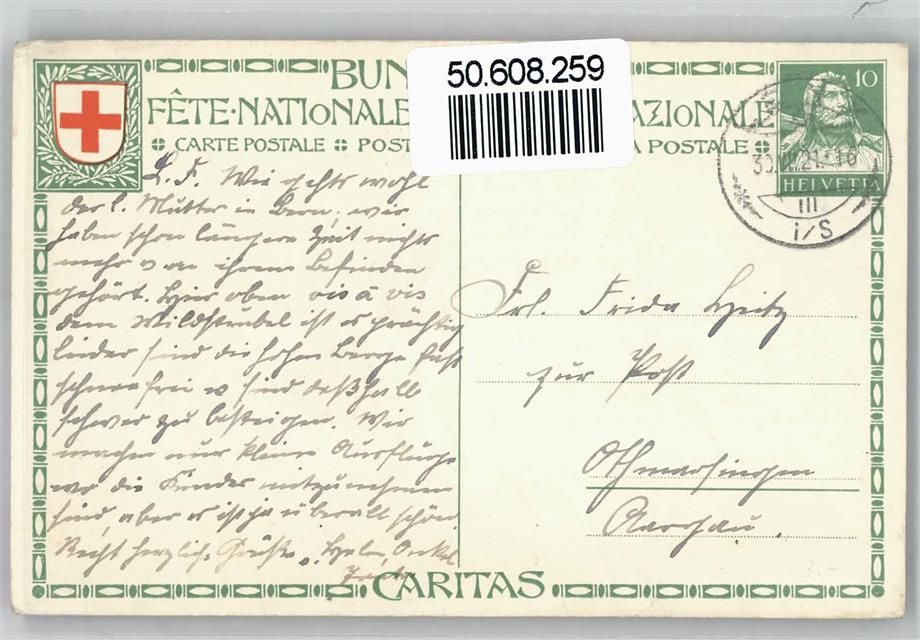 BUN
50.608.259
FÊTE·NATIONALE AZIONALE
CARTE POSTALE POST A POSTALE
10
HELVETIA
III
i/S
L. F. Wie gehts wohl
der l. Mutter in Bern, wir
haben schon längere Zeit nichts
mehr von ihrem Befinden
gehört. Hier oben vis à vis
dem Wildstrubel ist es prächtig
leider sind die hohen Berge fast
schneefrei u sind deßhalb
schwer zu besteigen. Wir
machen nur kleine Ausflüge
wo die Kinder mitzunehmen
sind, aber es ist ja überall schön.
Recht herzlich. Grüße
Frl. Frida Heitz
zur Post
Othmarsingen
Aargau.
CARITAS